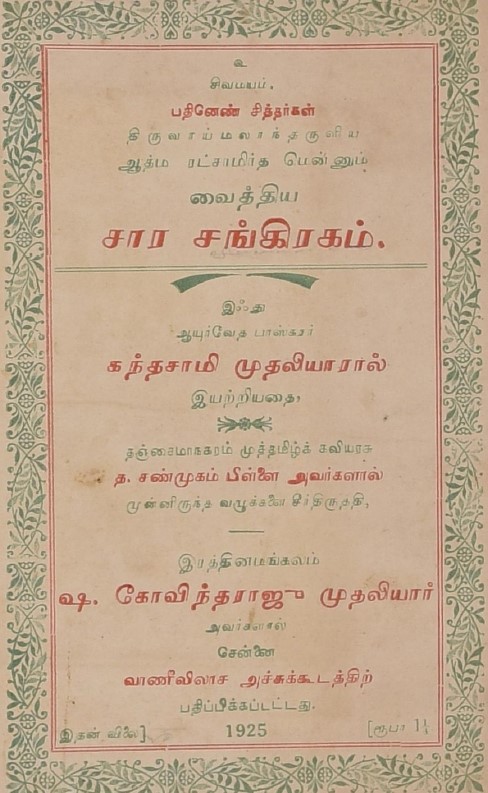 உ
சிவமயம்.
பதினேண் சித்தர்கள்
திருவாய்மலாந்தருளிய
ஆத்ம ரட்சாமிர்த பென்னும்
வைத்திய
சார சங்கிரகம்.
இஃது
ஆயுர்வேத பாஸ்கரர்
கந்தசாமி முதலியாரால்
இயற்றியதை,
தஞ்சைமாநகரம் முத்தமிழ்க் கவியரசு
த. சண்முகம் பிள்ளை அவர்களால்
முன்னிருந்த வழுக்களை சீர்திருத்தி,
இரத்தினமங்கலம்
ஷ. கோவிந்தராஜு முதலியார்
அவர்களால்
சென்னை
வாணீவிலாச அச்சுக்கூடத்திற்
பதிப்பிக்கப்பட்டது.
இதன் விலை] 1925 [ரூபா 1½